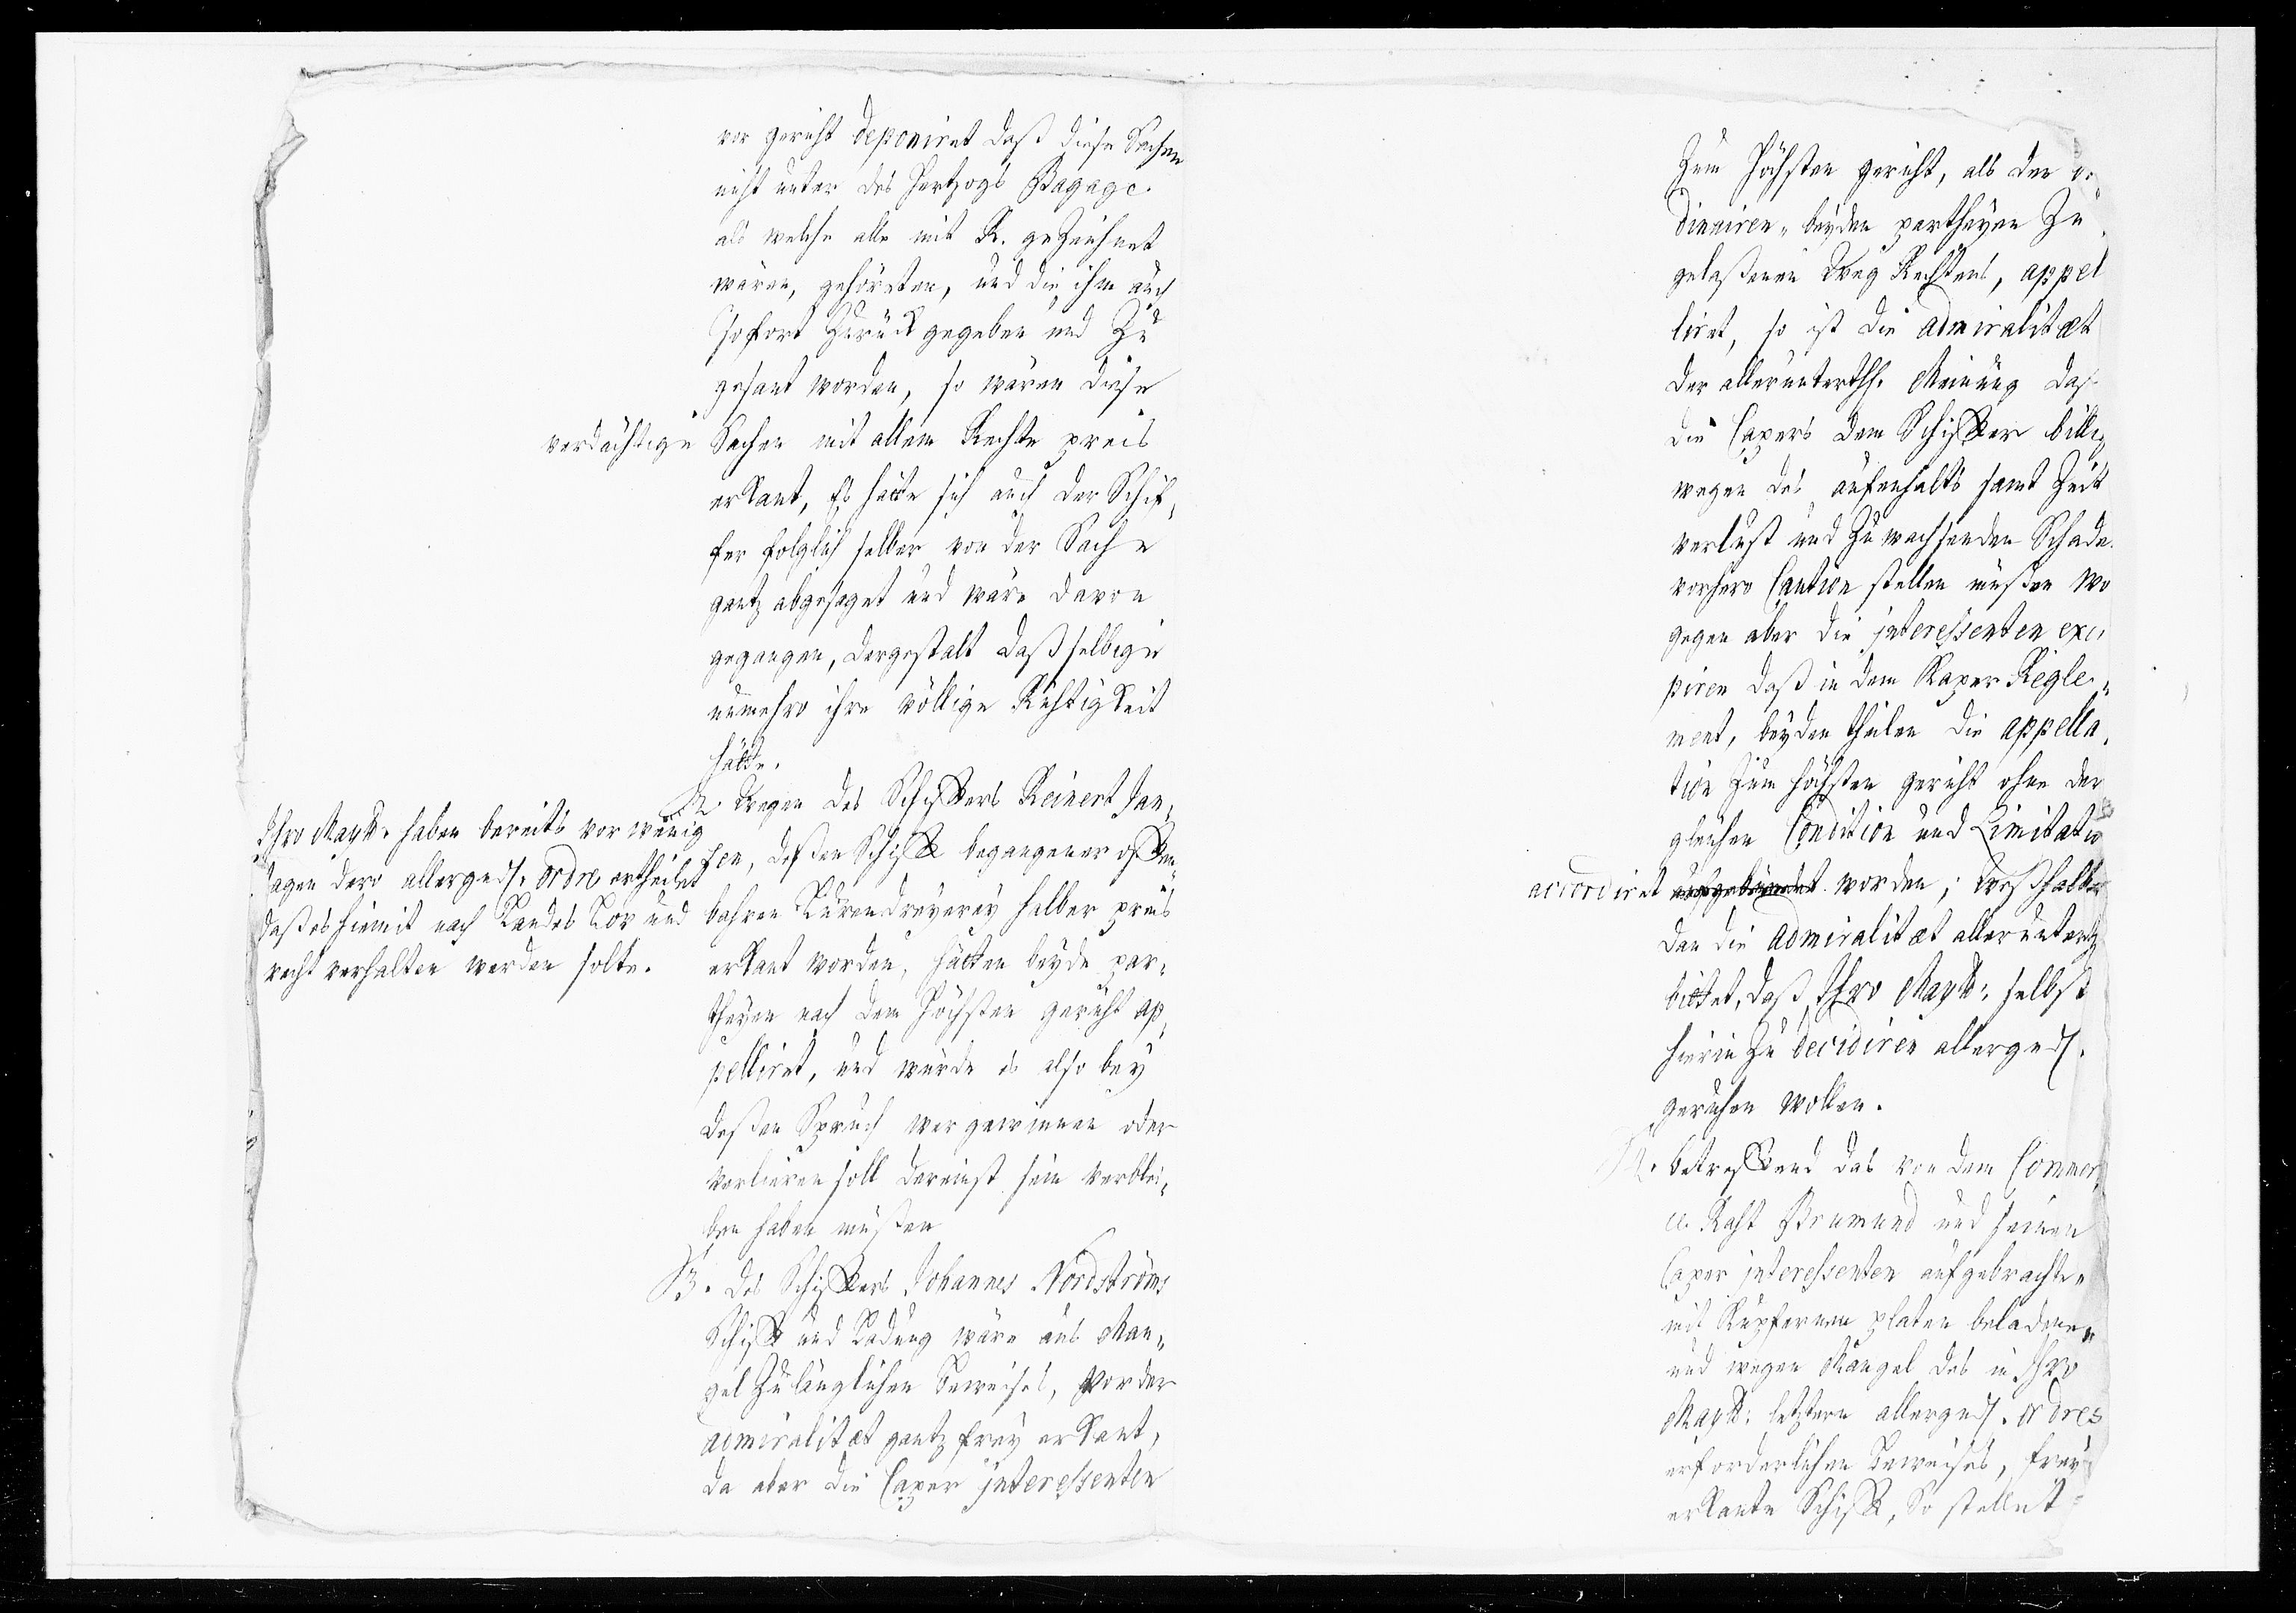 vor gericht deponiret daß diese Sachen
nicht unter des Hertzogs Bagage
als welche alle mit R. gezeichnet
wären, gehöreten, und die ihm auch
sofort zurück gegeben und zu
gesant worden, so wären diese
verdächtige Sachen mit allem Rechte preis
erkant, Es hätte sich auch der Schif,
fer folglich selber von der Sache
gantz abgesaget und wäre davon
gegangen, dergestalt daß selbige
nunmehro ihre völlige Richtigkeit
hätte.
2. Wegen des Schiffers Reinert Jan,
sen, deßen Schiff begangener offen,
bahren Lurendreyerey halber preis
erkant worden, hätten beyde par,
theyen nach dem Höchsten gericht ap,
pelliret, und würde es also bey
deßen Spruch wer gewinnen oder
verlieren soll dereinst sein verblei,
ben haben müßen
Ihro Maytt. haben bereits vor wenig
Tagen dero allergndst. ordre ertheilet
daß es hiemit nach Landes Lov und
recht verhalten werden solte.
3. Des Schiffers Johannes Nordströms
Schiff und Ladung wäre aus Man,
gel zulänglichen Beweises, vor der
admiralitæt gantz frey erkant,
da aber die Caper jnteressenten
Zum Höchsten gericht, als den or,
dinairen, beyden partheyen zu
gelaßenen Weg Rechtens, appel
liret, so ist die admiralitæt
der allerunterth. Meinung daß
die Capers dem Schiffer billig
wegen des aufenhalts samt Zeit
verlust und zuwachsenden Schade
vorhero Caution stellen müßten wo
gegen aber die jnteressenten exci
piren daß in dem Kaper Regle,
ment, beyden theilen die appella,
tion zum höchsten gericht ohne der
gleichen Condition und Limitatio
accordiret worden; Weßhalber
dan die admiralitæt alleruntertg
bittet, daß Ihro Maytt: selbst
hierin zu decidiren allergndst.
geruhen wollen.
4. betreffend das von dem Commer,
ce Raht Brumund und seinen
Caper jnteressenten aufgebrachte
mit Kupfernen platen beladene
und wegen Mangel des in Ihro
Maytt: letztern allergndst. ordres
erforderlichen Beweises, frey
erkante Schiff, So stellet